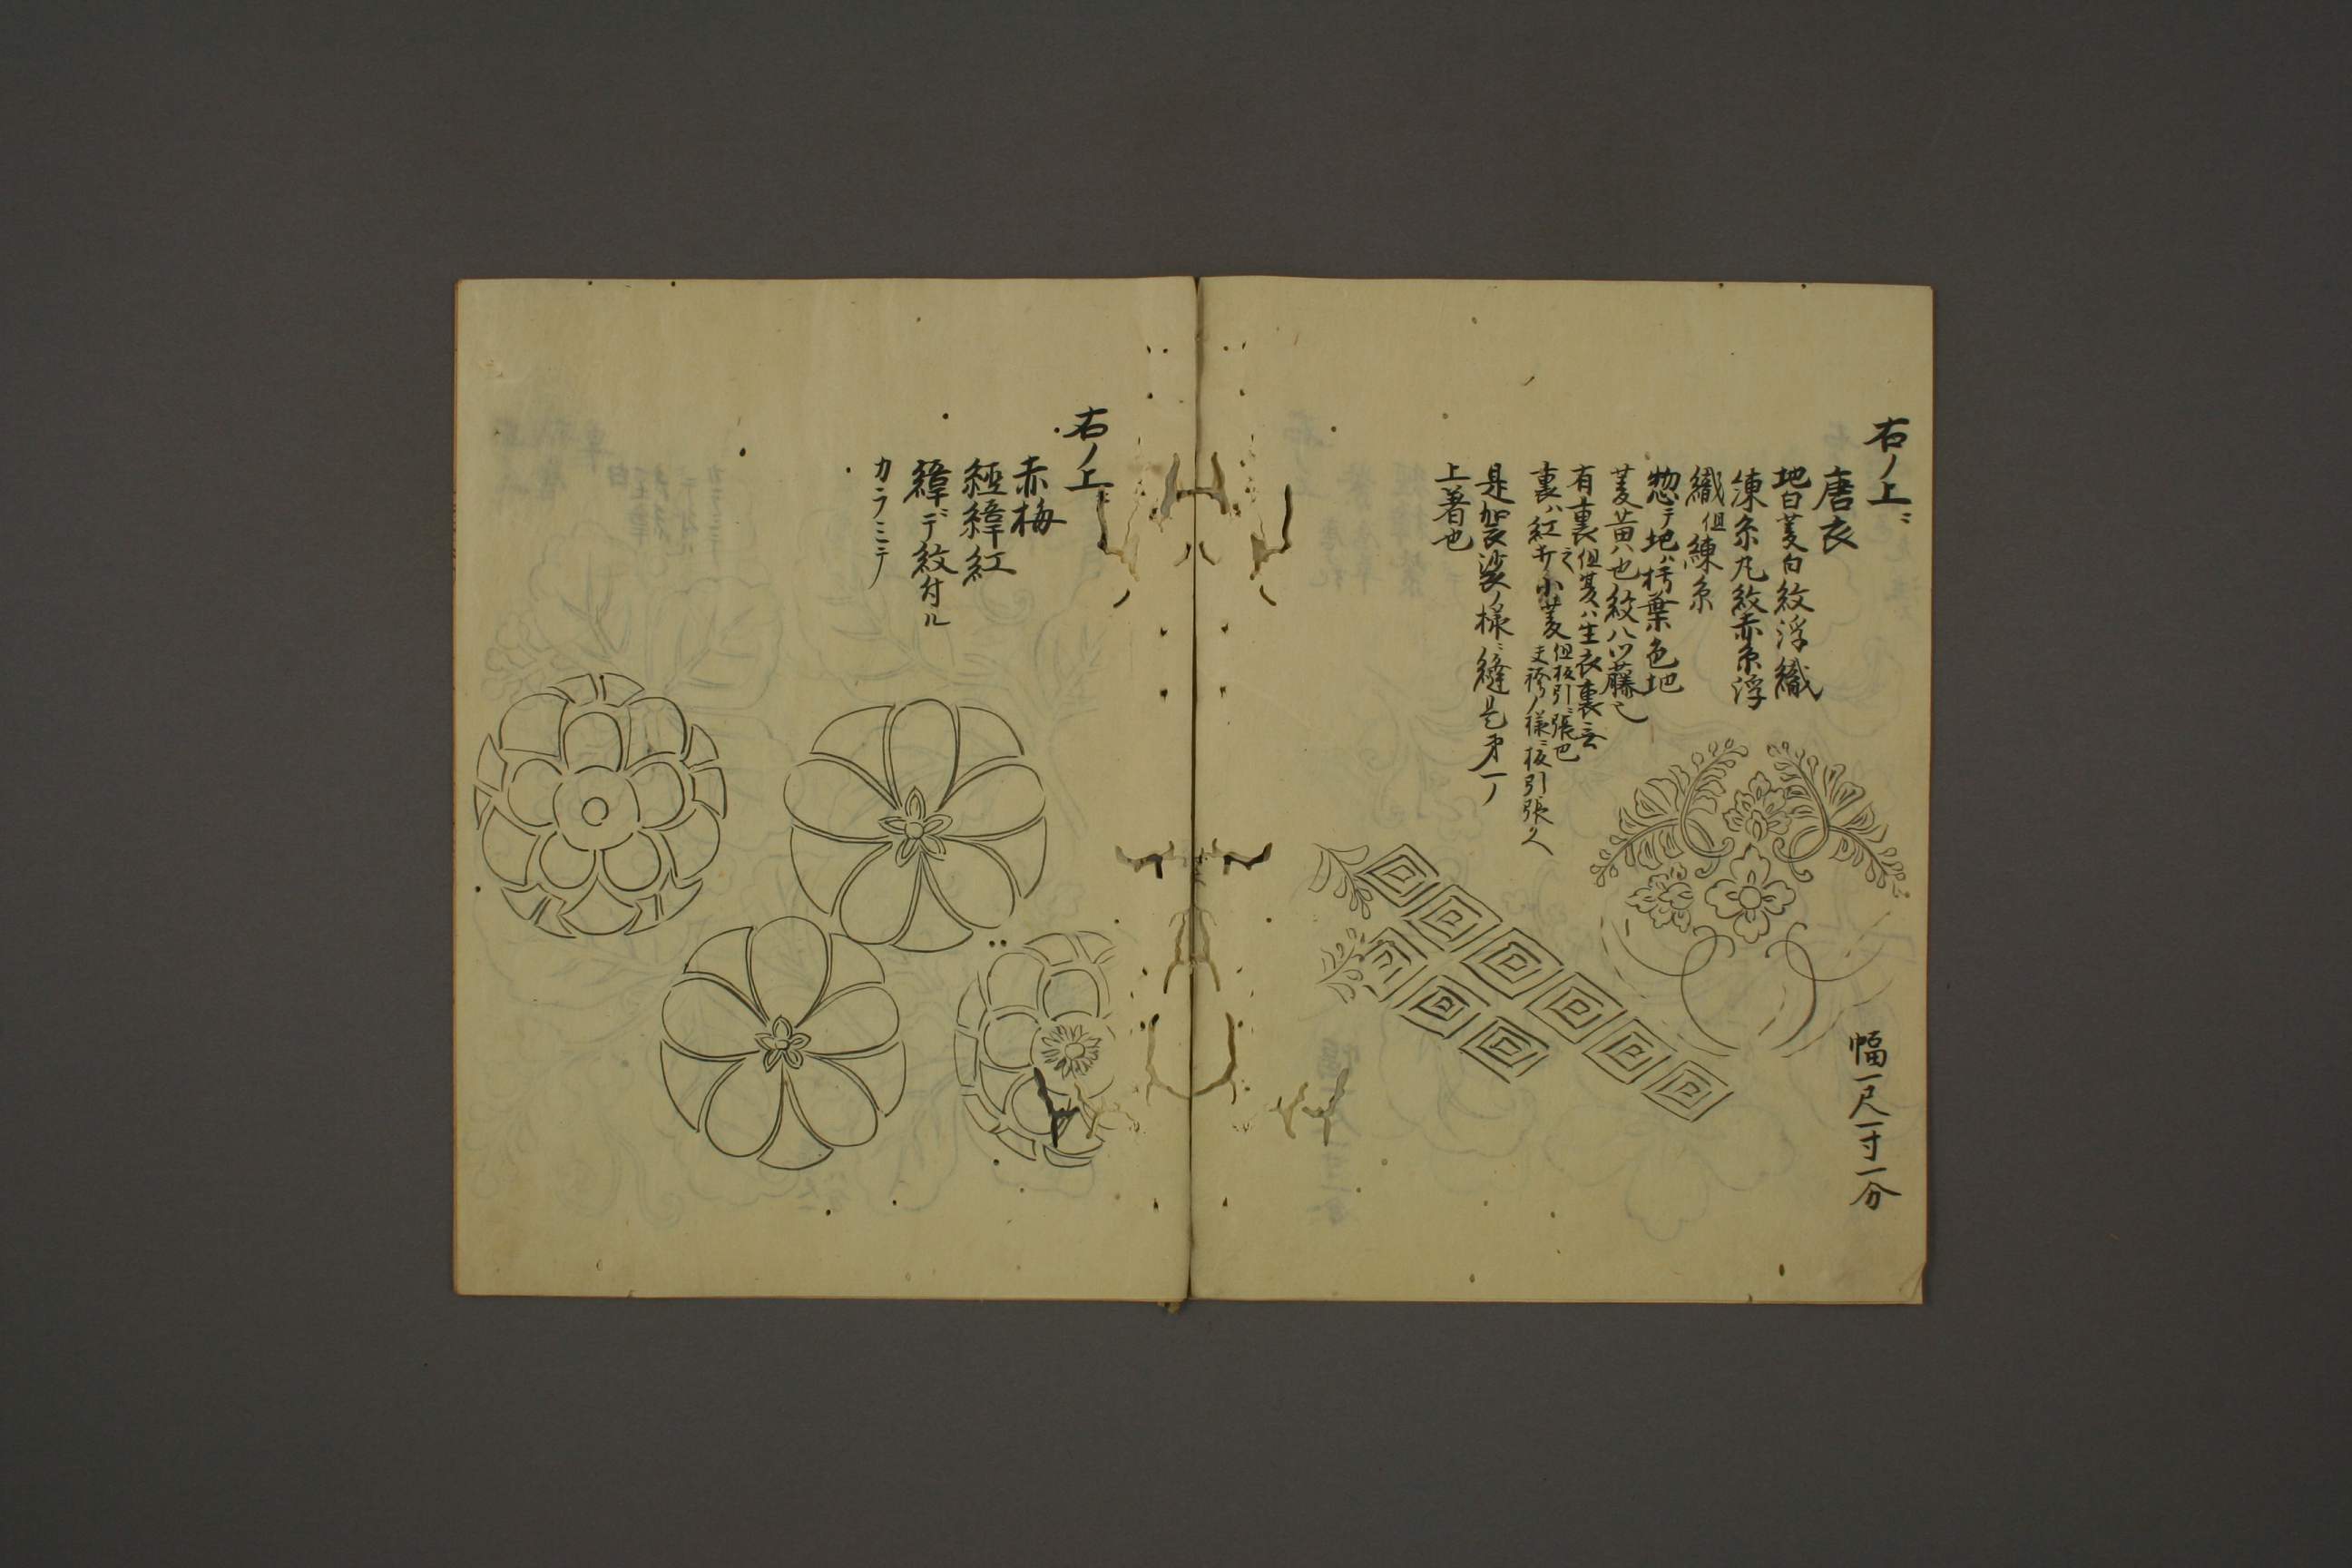 右ノ上ニ
唐衣
地白菱白紋浮織
練糸丸紋赤糸浮
織但練糸
惣テ地ハ朽葉色地
菱黄ハ也紋八ツ藤也
有裏之但夏ハ生衣裏無
裏ハ紅小菱但板引ニ張也
袴ノ様ニ板引張
是袈裟ノ様ニ縫
上著也
幅一尺一寸一分
右ノ上ニ
赤梅
經緯紅
緯デ紋付ル
カラミニテ